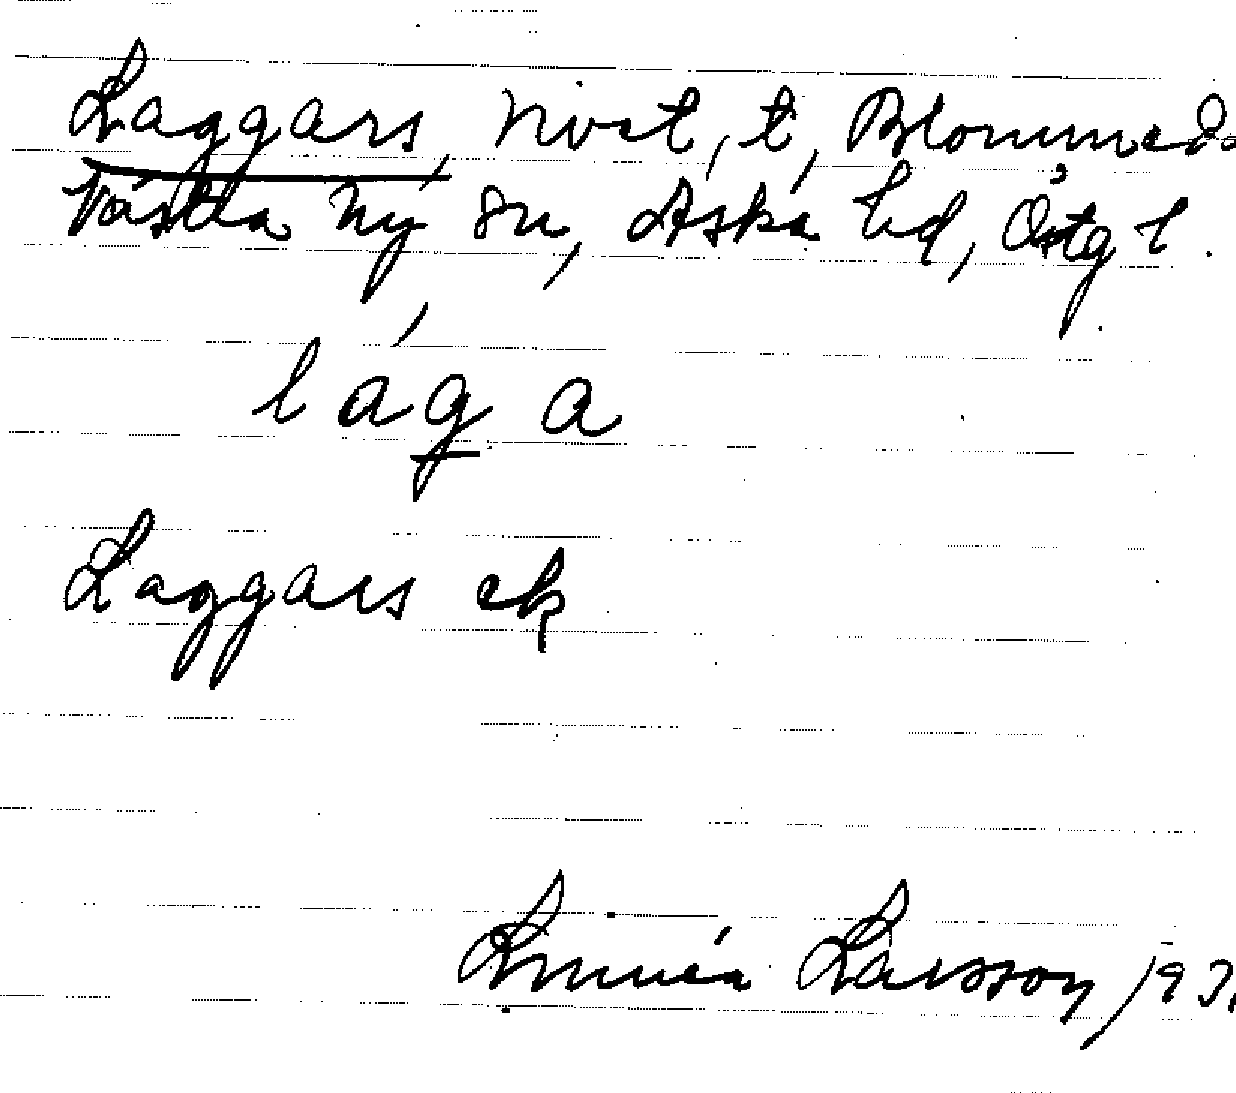 Laggars, kvst, t, Blommedal
Västra Ny sn, Aska hd, Östg l.
lága
Laggars ek
Linnéa Larsson 193